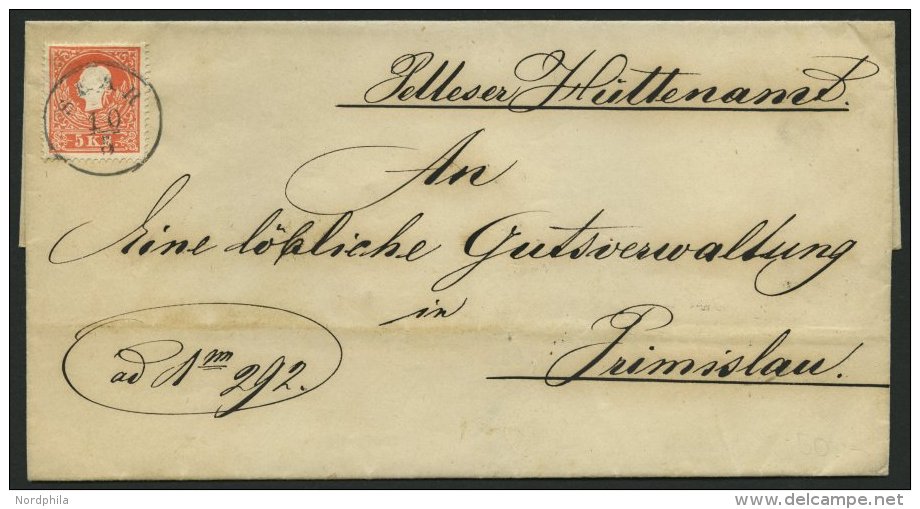 SAAR
10
5
5 KR.
Pelleser Hüttenamt.
An
Eine löbliche Gutsverwaltung
in
Primislau.
ad Nrm 292.
Nordphila
www.delcampe.net